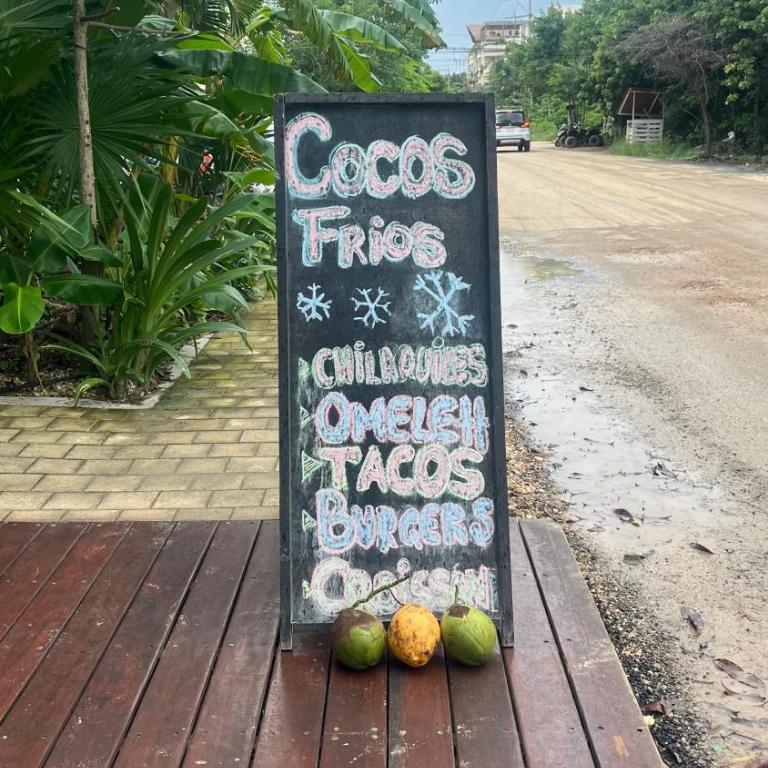 Cocos
Frios
CHILAQUILES
OMELETT
TACOS
BURGERS
CROISSAN